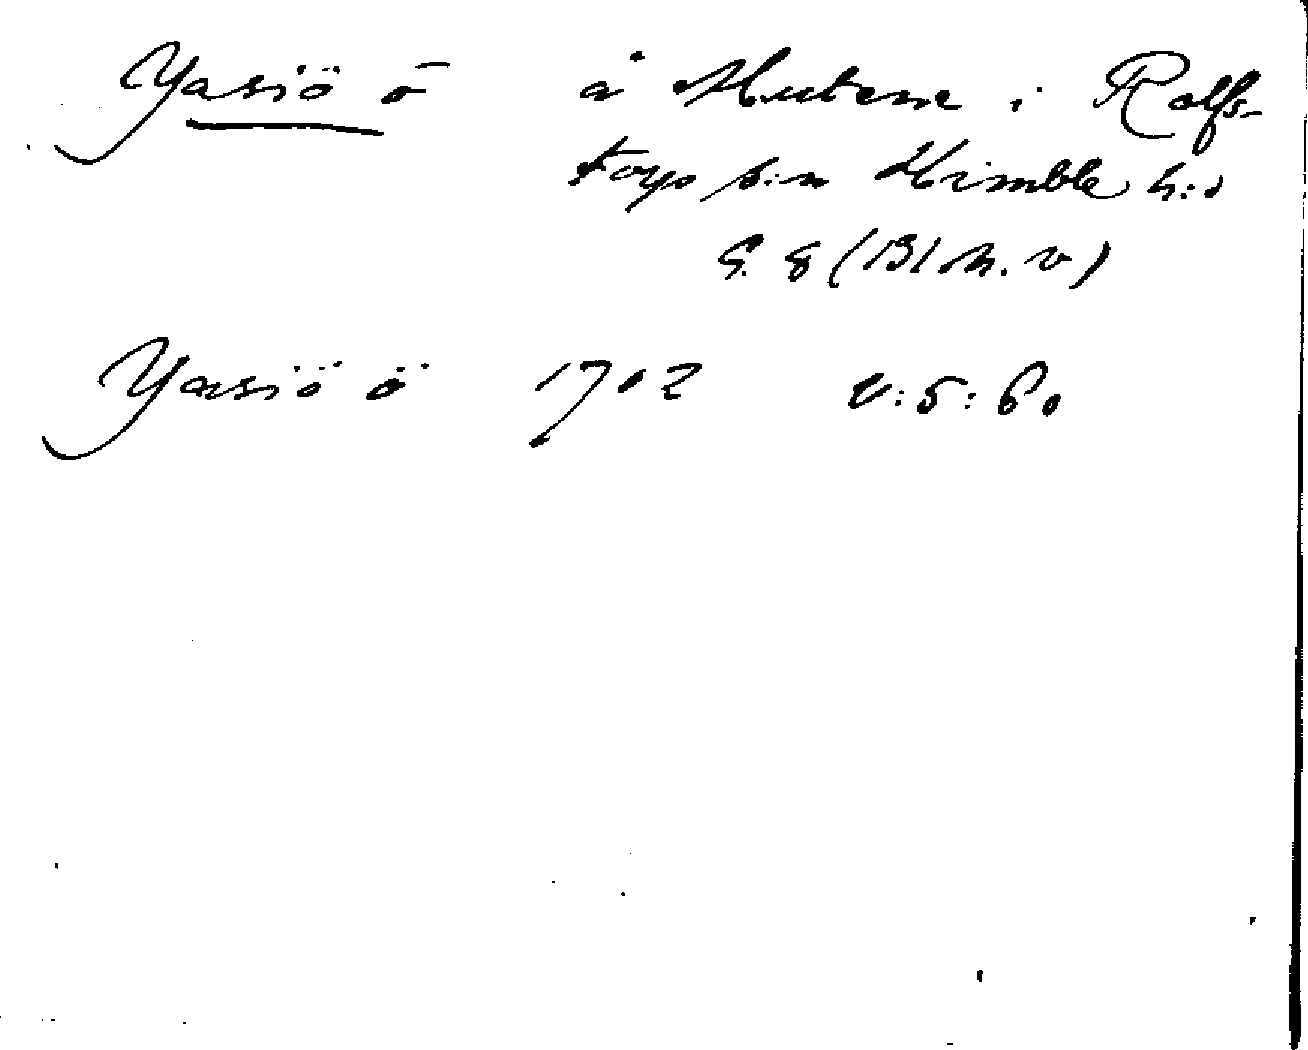 Yasiö ō å Mutene i Rolfs-
torps s:n Himble h:d
G. 8 (Bl. n. v)
Yasiö ö 1702 V:5:60